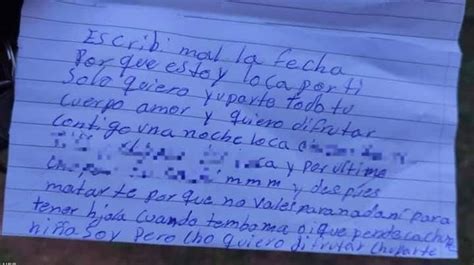 Escribi mal la fecha
Por que estoy loca por ti
Solo quiero yuparte todo tu
cuerpo amor y quiero difrutar
contigo una noche loca
y por ultimo
mmm y despies
matarte por que no vales para nada ni para
tener hjola cuando tembama o i que pende
niño soy Pero cho quiero difrutar chuparte